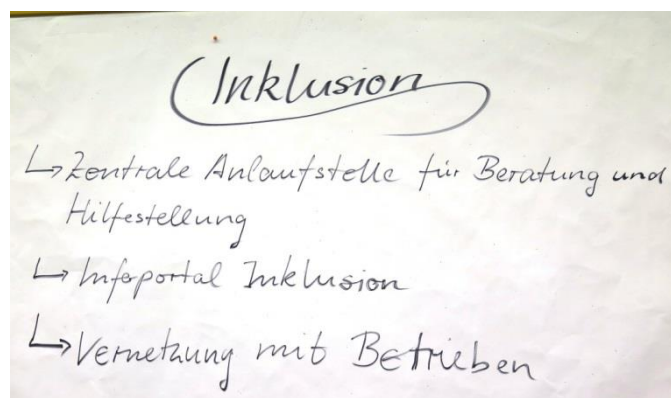 Inklusion
↳ Zentrale Anlaufstelle für Beratung und
Hilfestellung
↳ Infoportal Inklusion
↳ Vernetzung mit Betrieben